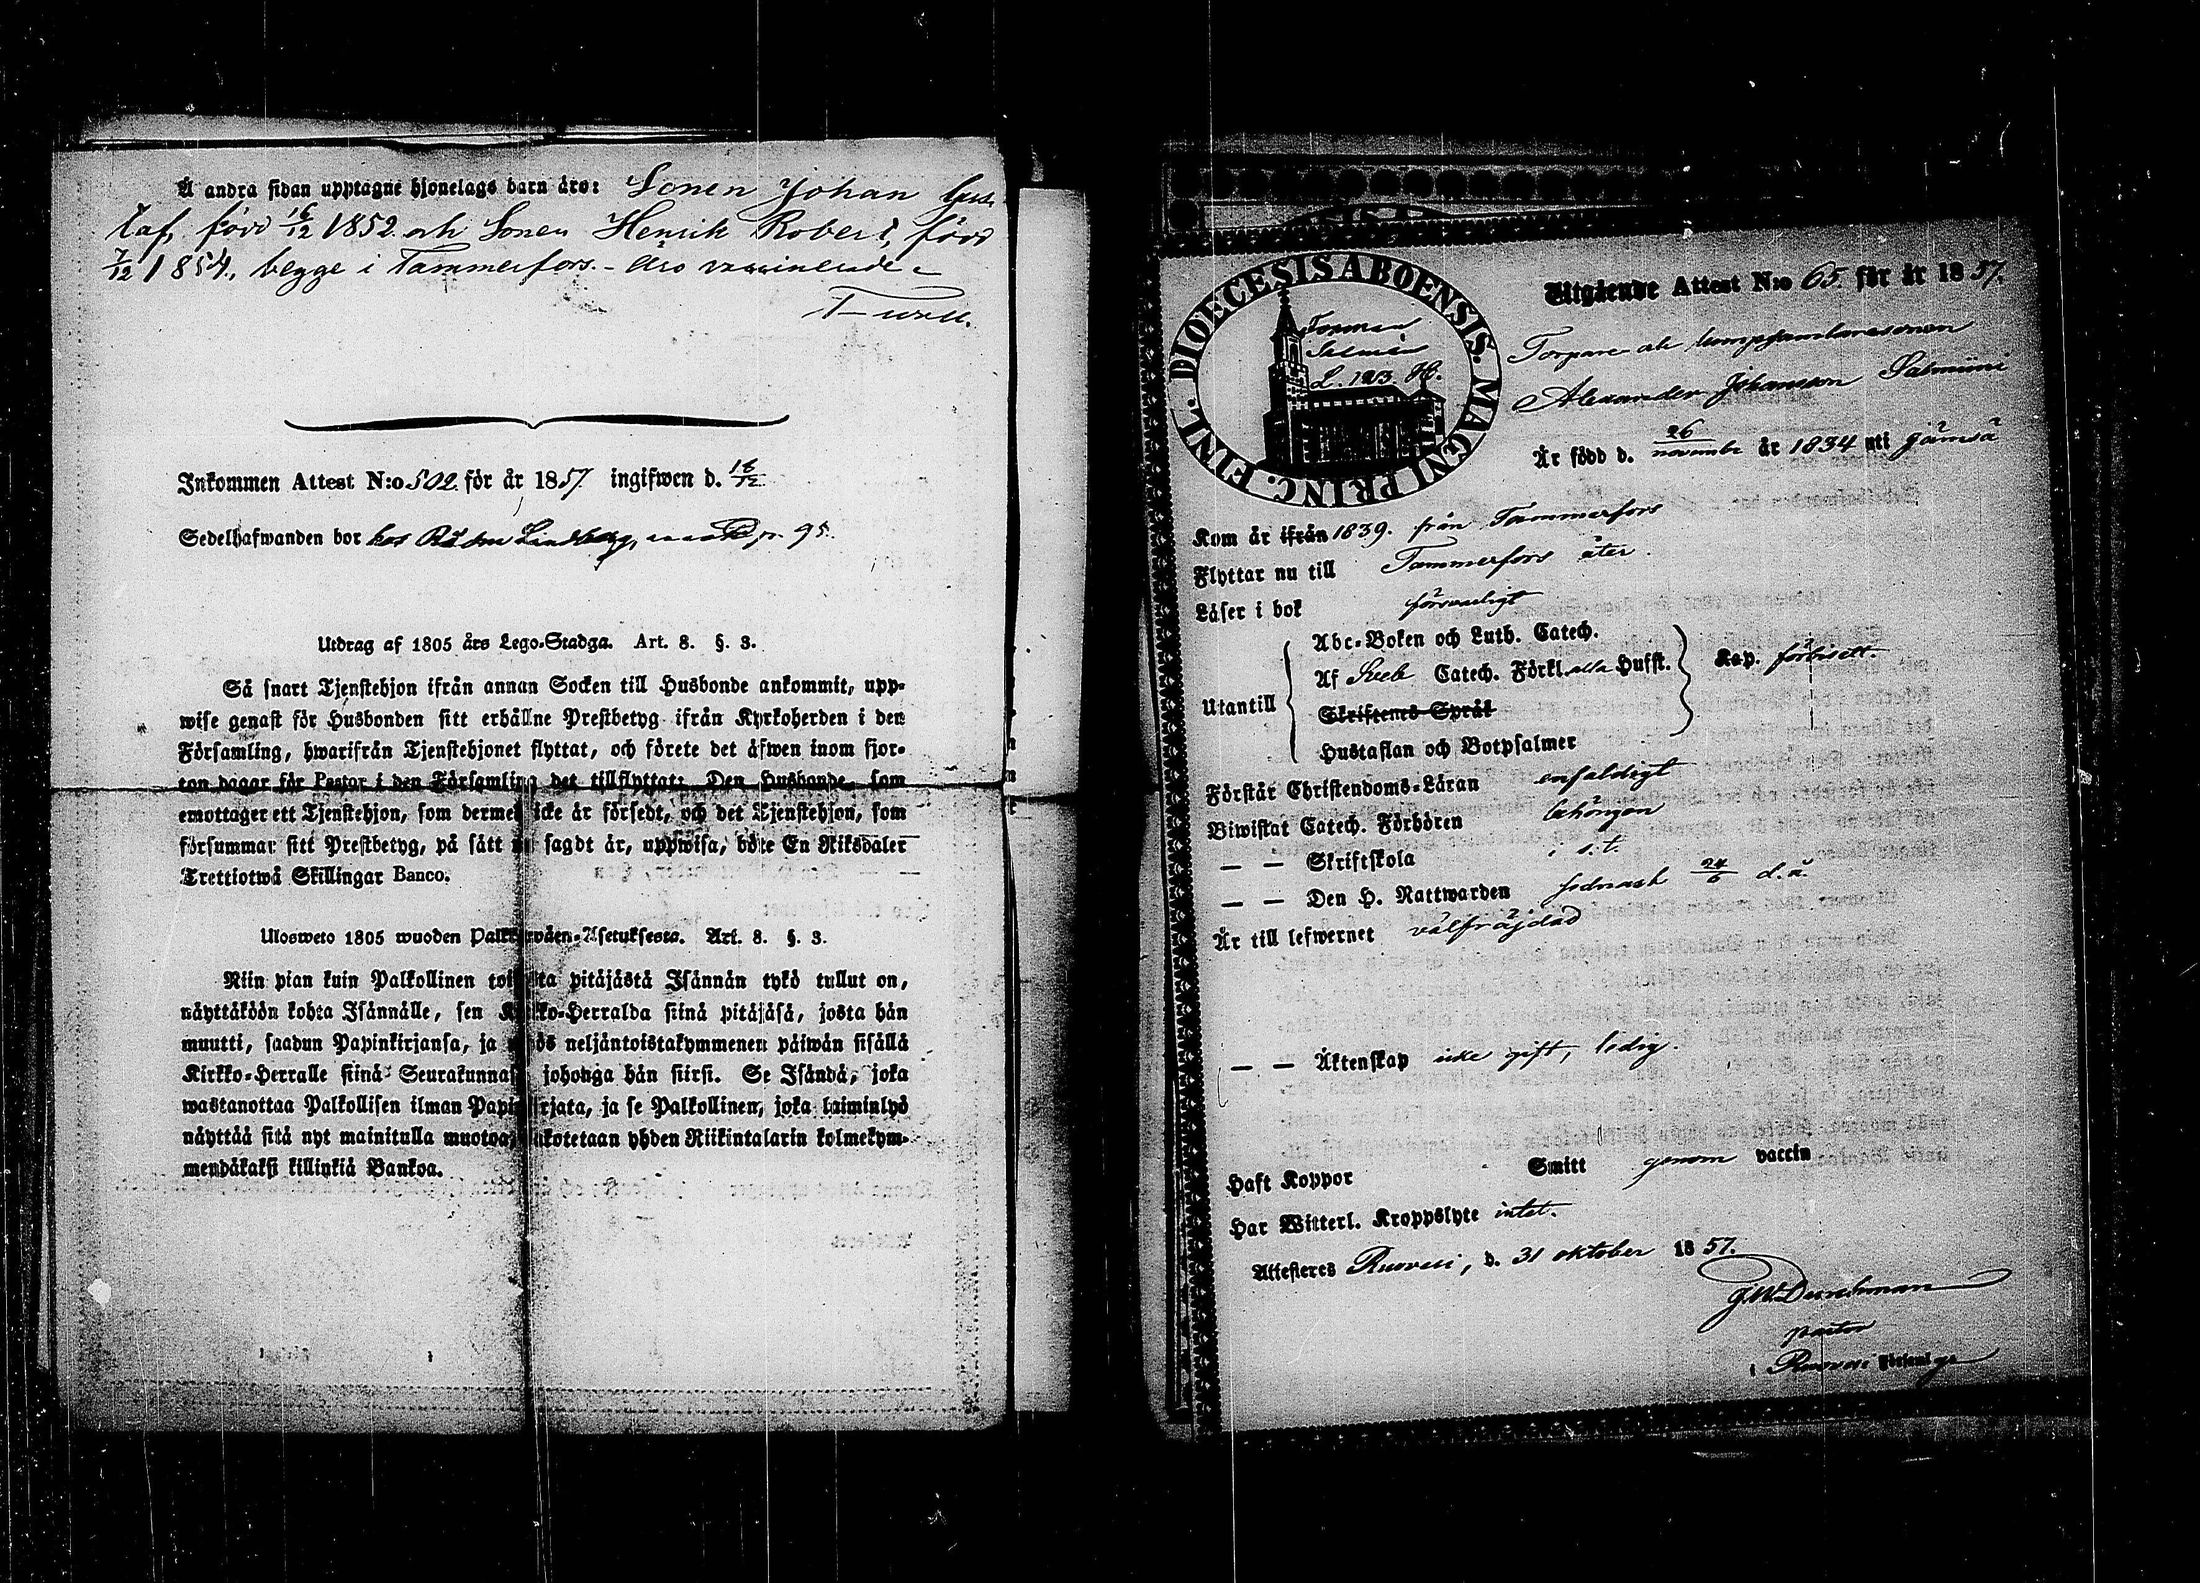 Å andra sidan upptagne hjonelags barn äro: Sonen Johan Gus-
taf, född 16/12 1852 och Sonen Henrik Robert, född
7/12 1854, begge i Tammerfors. - äro vaccinerade -
Inkommen Attest N:o 502 för år 1857 ingifwen d. 18/12
Sedelhafwanden bor hos Lindberg, 95.
Utdrag af 1805 års Lego-Stadga. Art. 8. §. 3.
Så snart Tjenstehjon ifrån annan Socken till Husbonde ankommit, upp-
wise genast för Husbonden sitt erhållne Prestbetyg ifrån Kyrkoherden i den
Församling, hwarifrån Tjenstehjonet flyttat, och förete det äfwen inom fjor-
ton dagar för Pastor i den Församling det tillflyttat: Den Husbonde, som
emottager ett Tjenstehjon, som dermed icke är försedt, och det Tjenstehjon, som
försummar sitt Prestbetyg, på sätt nu sagdt är, uppwisa, böte En Riksdaler
Trettiotwå Skillingar Banco.
Ulosweto 1805 wuoden Palkkawäen-Asetuksesta. Art. 8. §. 3.
Niin pian kuin Palkollinen toisesta pitäjästä Isännän tykö tullut on,
näyttäköön kohta Isännälle, sen Kirkko-Herralda siinä pitäjäsä, josta hän
muutti, saadun Papinkirjansa, ja myös neljäntoistakymmenen päiwän sisällä
Kirkko-Herralle siinä Seurakunnasa johonga hän siirsi. Se Isändä, joka
wastanottaa Palkollisen ilman Papinkirjata, ja se Palkollinen, joka laiminlyö
näyttää sitä nyt mainitulla muotoa, sakotetaan yhden Riikintalarin kolmekym-
mendäkaksi killinkiä Bankoa.
DIOECESIS ABOENSIS. MAGNI PRINC. FINL.
L. 123 H.
Utgående Attest N:o 65 för år 1857.
Torpare och
Alexander Johansson Salmiini
Är född d. 26 november år 1834 uti Jämsä
Kom år ifrån 1839. från Tammerfors
Flyttar nu till Tammerfors åter.
Läser i bok försvarligt
Abc-Boken och Luth. Catech.
Utantill Af Sveb Catech. Förkl. alla Hufst. Kap. förbisett.
Skriftenes Språk
Hustaflan och Botpsalmer
Förstår Christendoms-Läran enfaldigt
Biwistat Catech. Förhören behörigen
— — Skriftskola i s. t.
— — Den H. Nattwarden sednast 24/6 d. å.
Är till lefwernet välfräjdad
— — Äktenskap icke gift, ledig.
Haft Koppor Smitt genom vaccin
Har Witterl. Kroppslyte intet.
Attesteras Ruovesi, d. 31 oktober 1857.
pastor
i Ruovesi Förs